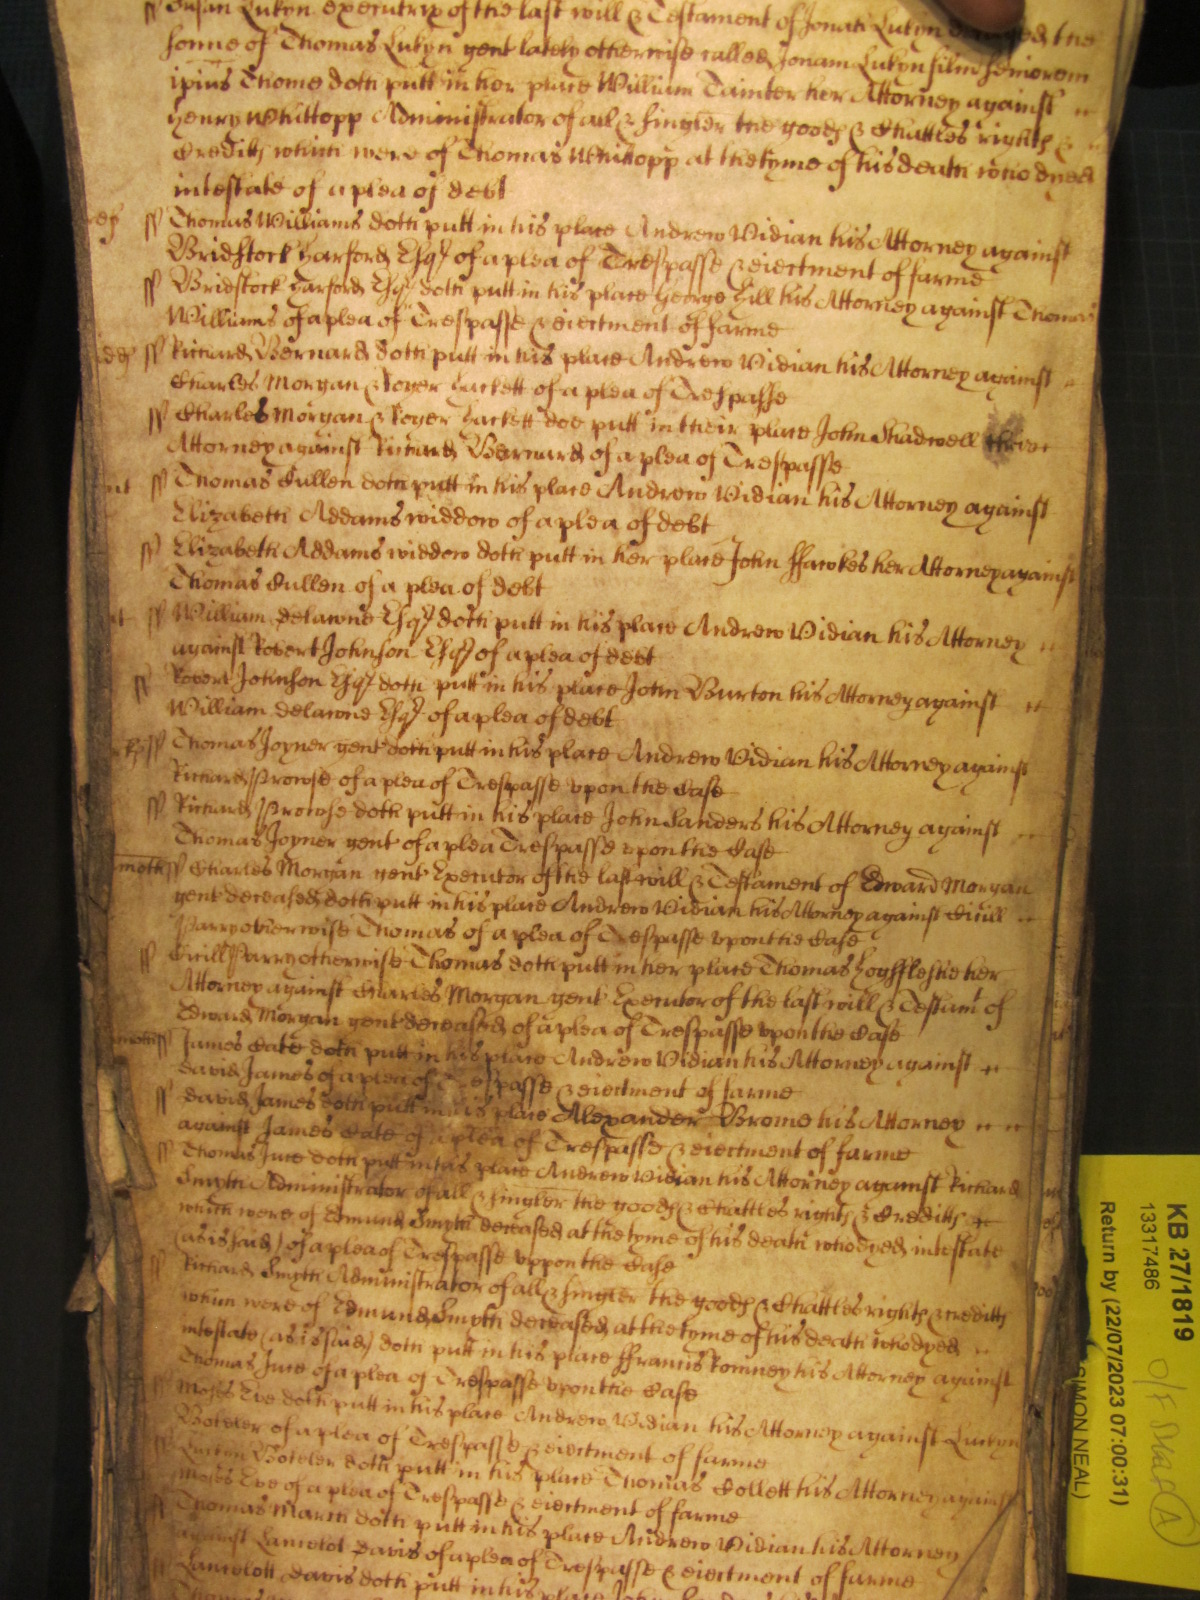 ss Susan Lukyn executrix of the last will & Testament of Jonath Lukyn deceased the
sonne of Thomas Lukyn gent lately otherwise called Jonam Lukyn film seniorem
ipius Thome doth putt in her place William Tainter her Attorney against
Henry Whittopp Administrator of all & singler the goods & Chattles rights &
Creditts which were of Thomas Whittopp at the tyme of his death who dyed
intestate of a plea of debt
ref ss Thomas Williams doth putt in his place Andrew Vidian his Attorney against
Bridstock Harford Esqr of a plea of Trespasse & eiectment of farme
ss Bridstock Harford Esqr doth putt in his place George Hill his Attorney against Thomas
Williams of a plea of Trespasse & eiectment of farme
ss Richard Bernard doth putt in his place Andrew Vidian his Attorney against
Charles Morgan & Roger Hackett of a plea of Trespasse
ss Charles Morgan & Roger Hackett doe putt in their place John Shadwell their
Attorney against Richard Bernard of a plea of Trespasse
nt ss Thomas Cullen doth putt in his place Andrew Vidian his Attorney against
Elizabeth Addams widdow of a plea of debt
ss Elizabeth Addams widdow doth putt in her place John ffawkes her Attorney against
Thomas Cullen of a plea of debt
ss William delawne Esqr doth putt in his place Andrew Vidian his Attorney
against Robert Johnson Esqr of a plea of debt
ss Robert Johnson Esqr doth putt in his place John Burton his Attorney against
William delawne Esqr of a plea of debt
ss Thomas Joyner gent doth putt in his place Andrew Vidian his Attorney against
Richard Prowse of a plea of Trespasse vpon the Case
ss Richard Prowse doth putt in his place John Sanders his Attorney against
Thomas Joyner gent of a plea Trespasse vpon the Case
month ss Charles Morgan gent Executor of the last will & Testament of Edward Morgan
gent deceased doth putt in his place Andrew Vidian his Attorney against Cicill
Parry otherwise Thomas of a plea of Trespasse vpon the Case
ss Cicill Parry otherwise Thomas doth putt in her place Thomas her
Attorney against Charles Morgan gent Executor of the last will & Testamt of
Edward Morgan gent deceased of a plea of Trespasse vpon the Case
month ss James Cate doth putt in his place Andrew Vidian his Attorney against
david James of a plea of Trespasse & eiectment of farme
ss david James doth putt in his place Alexander Brome his Attorney
against James Cate of a plea of Trespasse & eiectment of farme
ss Thomas Juce doth putt in his place Andrew Vidian his Attorney against Richard
Smyth Administrator of all & singler the goods & Chattles rights & Creditts
which were of Edmund Smyth deceased at the tyme of his death who dyed intestate
(as is said) of a plea of Trespasse vppon the Case
ss Richard Smyth Administrator of all & singler the goods & Chattles rights & creditts
which were of Edmund Smyth deceased at the tyme of his death who dyed
intestate (as is said) doth putt in his place ffrancis Romney his Attorney against
Thomas Juce of a plea of Trespasse vpon the Case
ss Moses Eve doth putt in his place Andrew Vidian his Attorney against Luckyn
Boteler of a plea of Trespasse & eiectment of farme
ss Luckyn Boteler doth putt in his place Thomas Collett his Attorney against
Moses Eve of a plea of Trespasse & eiectment of farme
ss Thomas March doth putt in his place Andrew Vidian his Attorney
against Lancelot davis of a plea of Trespasse & eiectment of farme
ss Lancelott davis doth putt in his place John
KB 27/1819
13317486
Return by (22/07/2023 07:00:31)
SIMON NEAL)